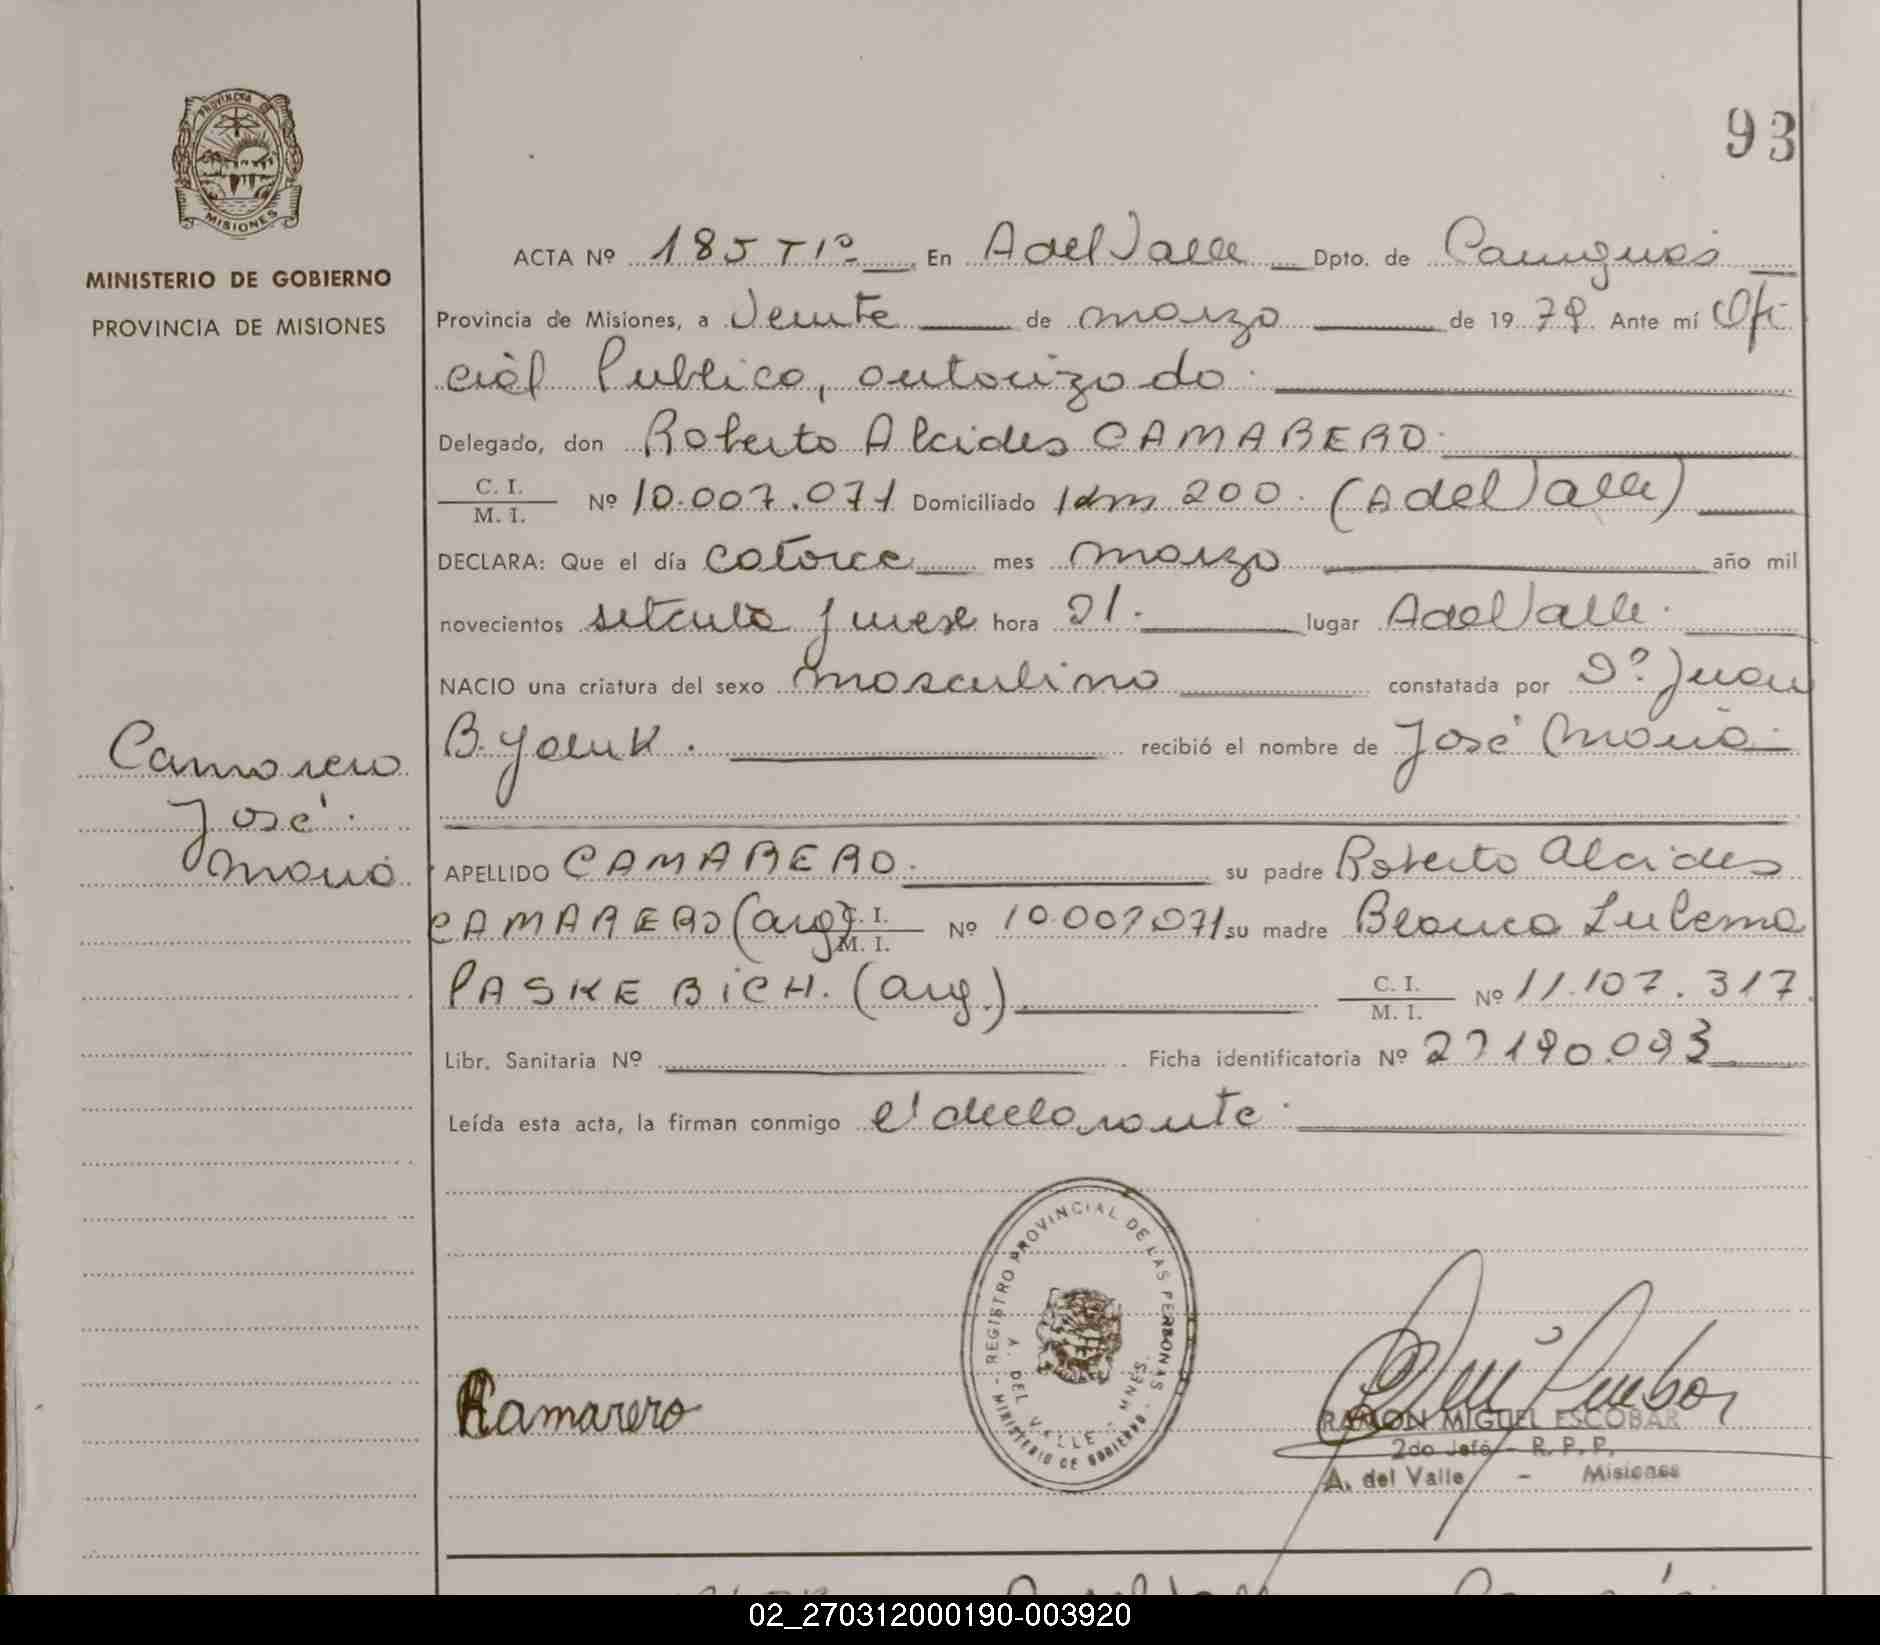 93
PROVINCIA DE
MISIONES
MINISTERIO DE GOBIERNO
PROVINCIA DE MISIONES
ACTA Nº 185 T1º En A del Valle Dpto. de Cainguás
Provincia de Misiones, a Veinte de marzo de 1979. Ante mí Ofi
cial Publico, autorizado.
Delegado, don Roberto Alcides CAMARERO.
C. I.
M. I. Nº 10.007.071 Domiciliado Km 200. (A del Valle)
DECLARA: Que el día catorce mes marzo año mil
novecientos setenta y nueve hora 21. lugar A del Valle.
NACIO una criatura del sexo masculino constatada por Dº. Juan
B. Yaluk. recibió el nombre de José María
Camarero
José
María
APELLIDO CAMARERO. su padre Roberto Alcides
CAMARERO (arg) C. I.
M. I. Nº 10.007071 su madre Blanca Zulema
PASKEBICH. (arg.) C. I.
M. I. Nº 11.107.317
Libr. Sanitaria Nº Ficha identificatoria Nº 27190.093
Leída esta acta, la firman conmigo el declarante.
REGISTRO PROVINCIAL DE LAS PERSONAS
MINISTERIO DE GOBIERNO
DEL VALLE - MNES.
Camarero
RAMON MIGUEL ESCOBAR
2do Jefe - R. P. P.
A. del Valle - Misiones
02_270312000190-003920